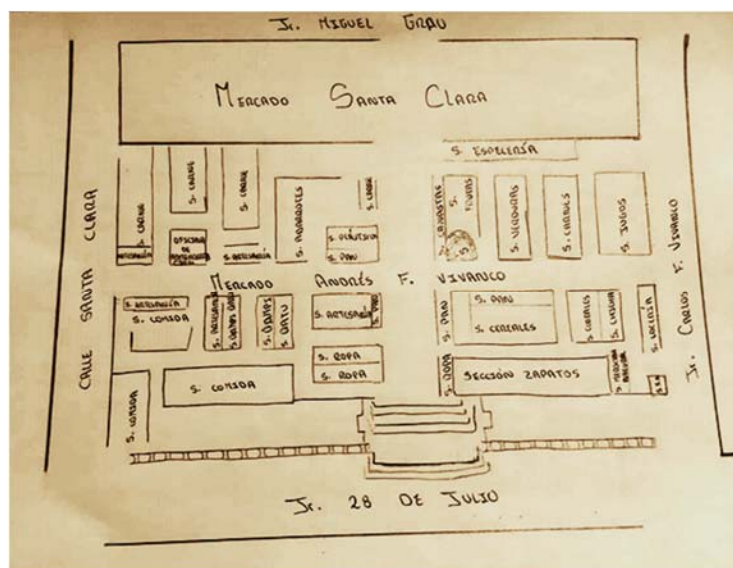 Jr. MIGUEL GRAU
MERCADO SANTA CLARA
S. ESPECERÍA
CALLE SANTA CLARA
S. CARNE
S. CARNE
S. CARNE
S. ABARROTES
S. CARNE
S. PAN
S. CANASTAS
S. FRUTAS
S. VERDURAS
S. CARNES
S. JUGOS
ARTESANÍA
OFICINA DE
S. ARTESANÍA
MERCADO ANDRÉS F. VIVANCO
Jr. CARLOS F. VIVANCO
S. ARTESANÍA
S. COMIDA
S. ARTESANÍA
S. ARTESANÍA
S. PAN
S. PAN
S. PAN
S. CEREALES
S. CEREALES
S. CHICHA
S. LOCERÍA
S. ROPA
S. ROPA
S. ROPA
SECCIÓN ZAPATOS
S. COMIDA
S. COMIDA
Jr. 28 DE JULIO